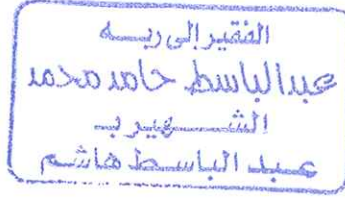 الفقير إلى ربه
عبدالباسط حامد محمد
الشهير بـ
عبد الباسط هاشم